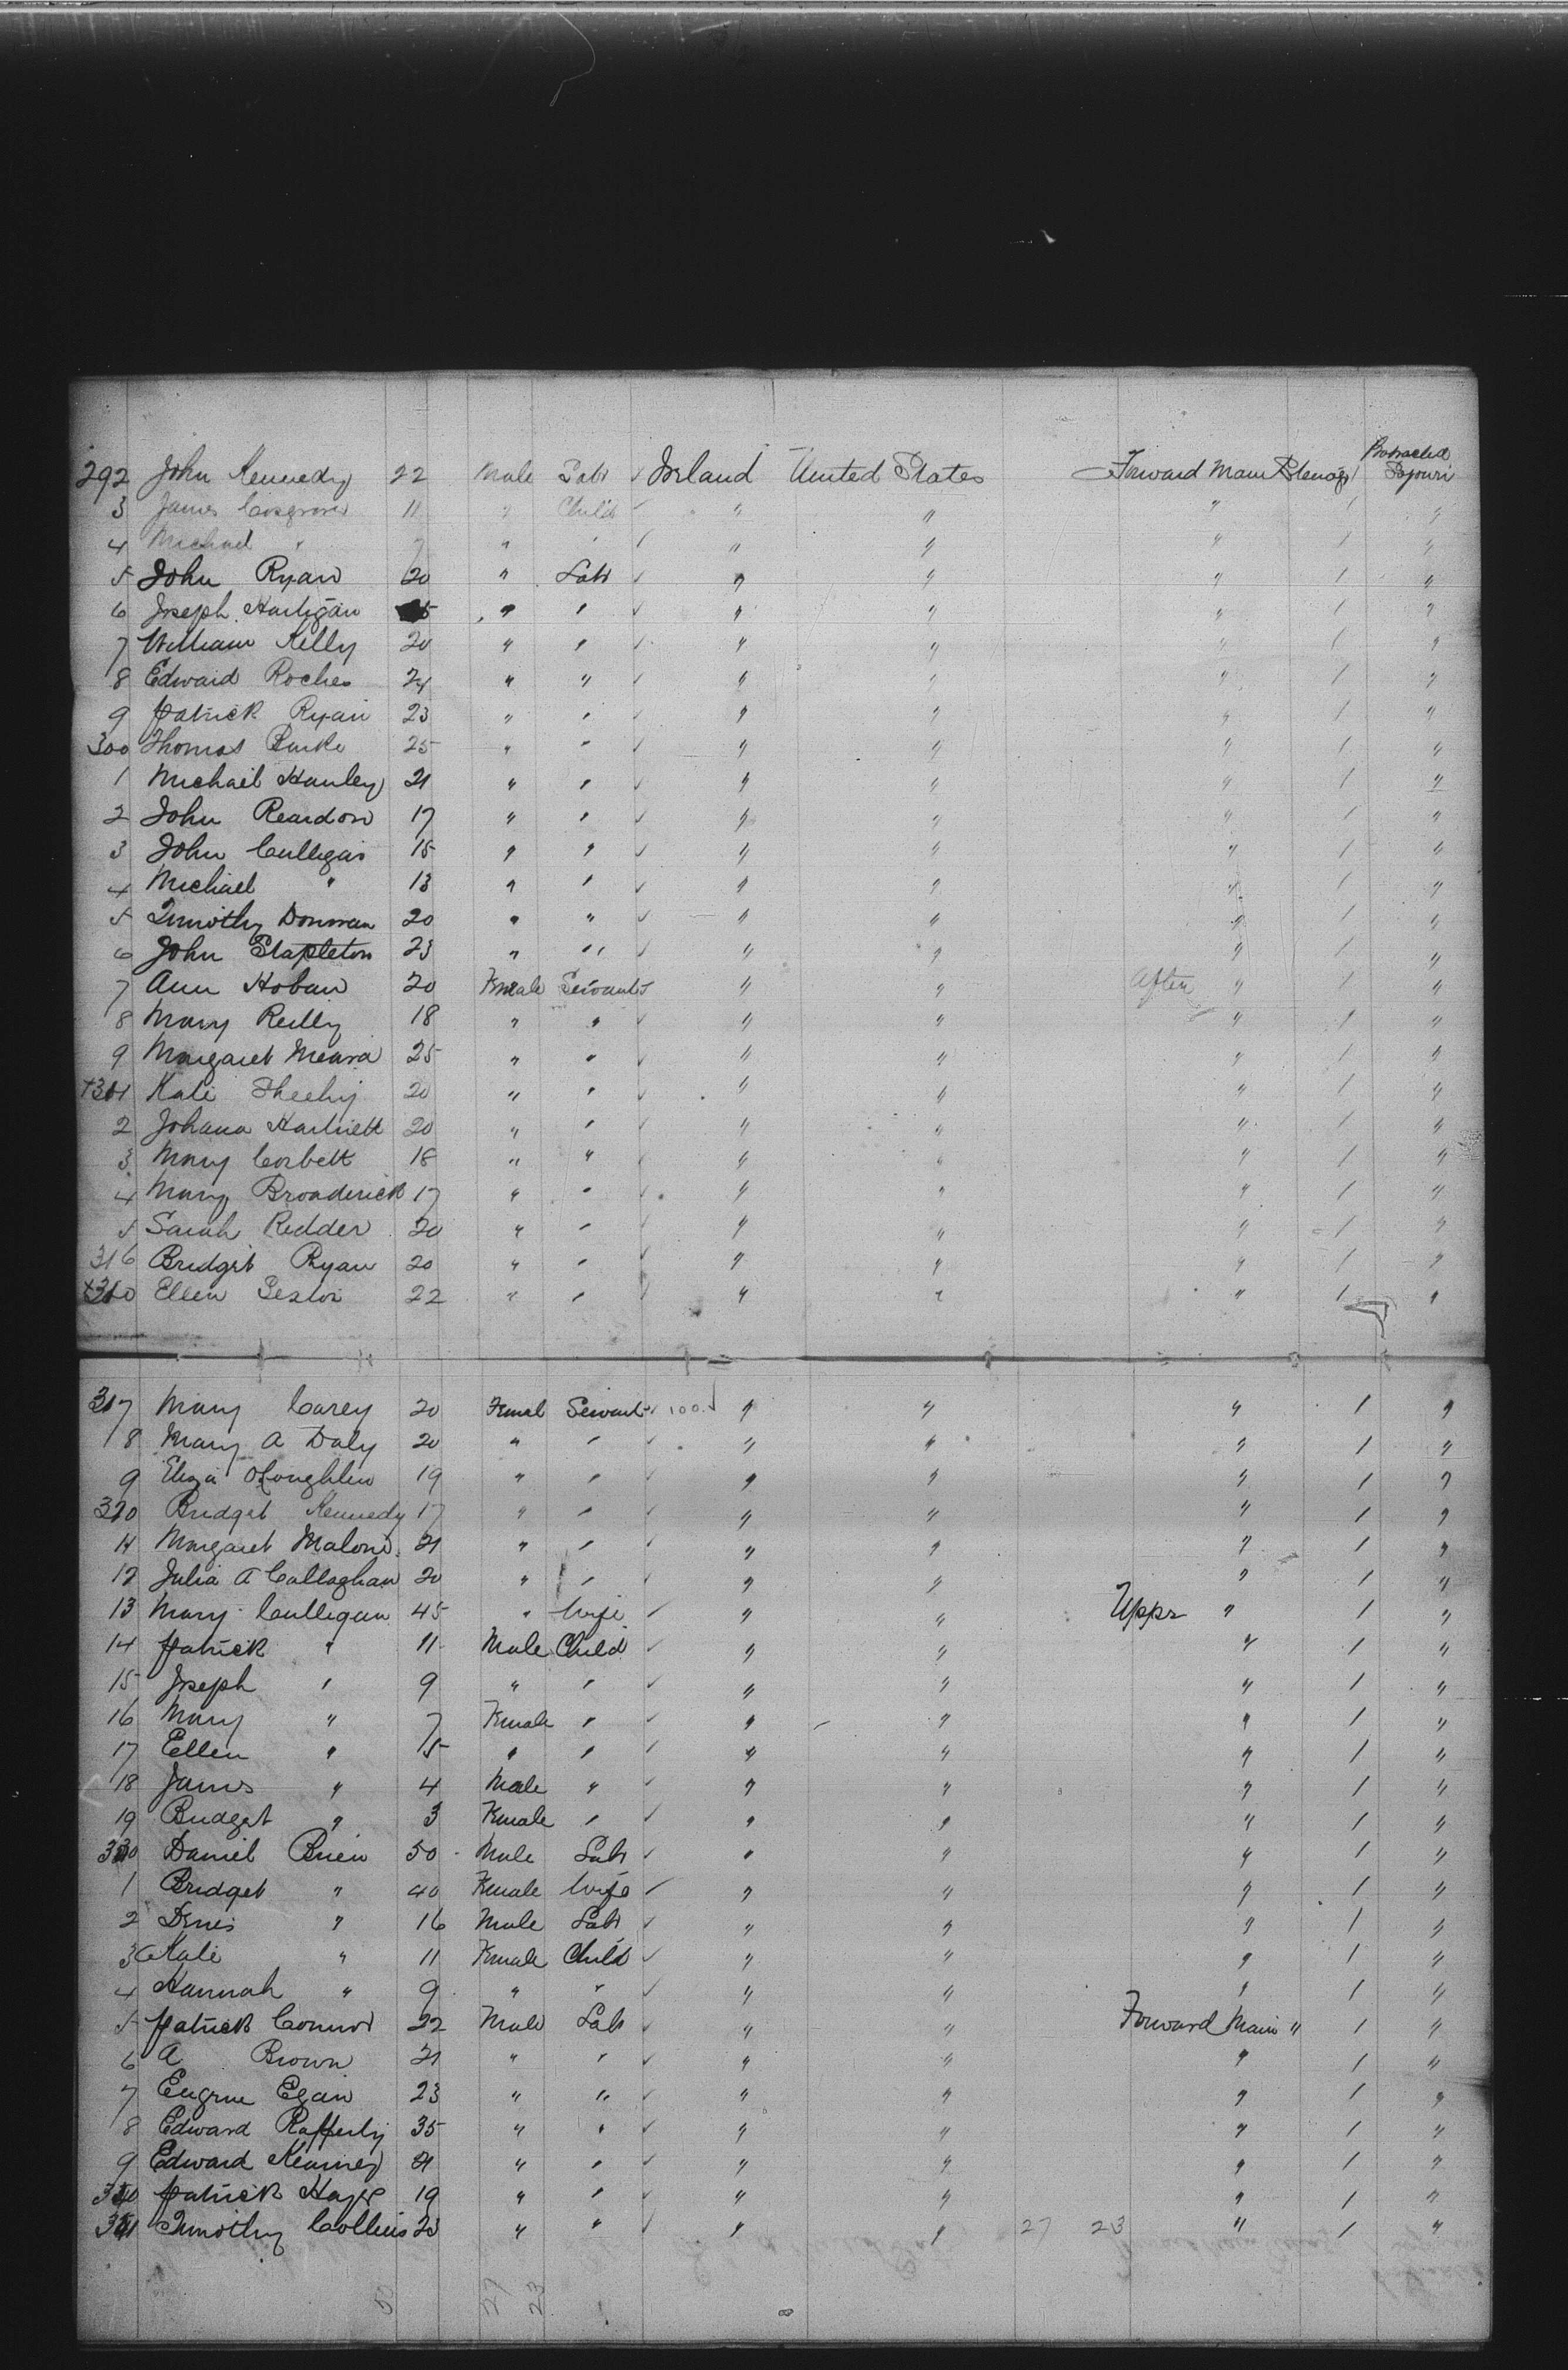 292 John Kennedy 22 Male Labr ✓ Ireland United States Forward Main Steerage 1 Protracted Sojourn
3 James Cosgrove 11 " Child ✓ " " " 1 "
4 Michael " 7 " " ✓ " " " 1 "
5 John Ryan 20 " Labr ✓ " " " 1 "
6 Joseph Hartigan " " ✓ " " " 1 "
7 William Kelly 20 " " ✓ " " " 1 "
8 Edward Roche 24 " " ✓ " " " 1 "
9 Patrick Ryan 23 " " ✓ " " " 1 "
300 Thomas Burke 25 " " ✓ " " " 1 "
1 Michael Hanley 21 " " ✓ " " " 1 "
2 John Reardon 17 " " ✓ " " " 1 "
3 John Culligan 15 " " ✓ " " " 1 "
4 Michael " 13 " " ✓ " " " 1 "
5 Timothy Donovan 20 " " ✓ " " " 1 "
6 John Stapleton 23 " " ✓ " " " 1 "
7 Ann Hoban 20 Female Servant ✓ " " After " 1 "
8 Mary Reilly 18 " " ✓ " " " 1 "
9 Margaret Meara 25 " " ✓ " " " 1 "
Kate Sheehy 20 " " ✓ " " " 1 "
2 Johana Hartnett 20 " " ✓ " " " 1 "
3 Mary Corbett 18 " " ✓ " " " 1 "
4 Mary Broaderick 17 " " ✓ " " " 1 "
5 Sarah Redder 20 " " ✓ " " " 1 "
316 Bridget Ryan 20 " " ✓ " " " 1 "
Ellen 22 " " ✓ " " " 1 "
317 Mary Carey 20 Femal Servant ✓ 100 ✓ " " " 1 "
8 Mary A Daly 20 " " ✓ " " " 1 "
9 Eliza OLoughlin 19 " " ✓ " " " 1 "
320 Bridget Kennedy 17 " " ✓ " " " 1 "
11 Margaret Malone 21 " " ✓ " " " 1 "
12 Julia A Callaghan 20 " " ✓ " " " 1 "
13 Mary Culligan 45 " Wife ✓ " " Upper " 1 "
14 Patrick " 11 Male Child ✓ " " " 1 "
15 Joseph " 9 " " ✓ " " " 1 "
16 Mary " 7 Female " ✓ " " " 1 "
17 Ellen " 5 " " ✓ " " " 1 "
18 James " 4 Male " ✓ " " " 1 "
19 Bridget " 3 Female " ✓ " " " 1 "
330 Daniel Brien 50 Male Labr ✓ " " " 1 "
1 Bridget " 40 Female Wife ✓ " " " 1 "
2 Denis " 16 Male Labr ✓ " " " 1 "
3 Kate " 11 Female Child ✓ " " " 1 "
4 Hannah " 9 " " ✓ " " " 1 "
5 Patrick Connor 22 Male Labr ✓ " " Forward Main " 1 "
6 A Brown 21 " " ✓ " " " 1 "
7 Eugene Egan 23 " " ✓ " " " 1 "
8 Edward Rafferty 35 " " ✓ " " " 1 "
9 Edward Kearney 21 " " ✓ " " " 1 "
340 Patrick Hayes 19 " " ✓ " " " 1 "
341 Timothy Collins 23 " " ✓ " " 27 23 " 1 "
27 23